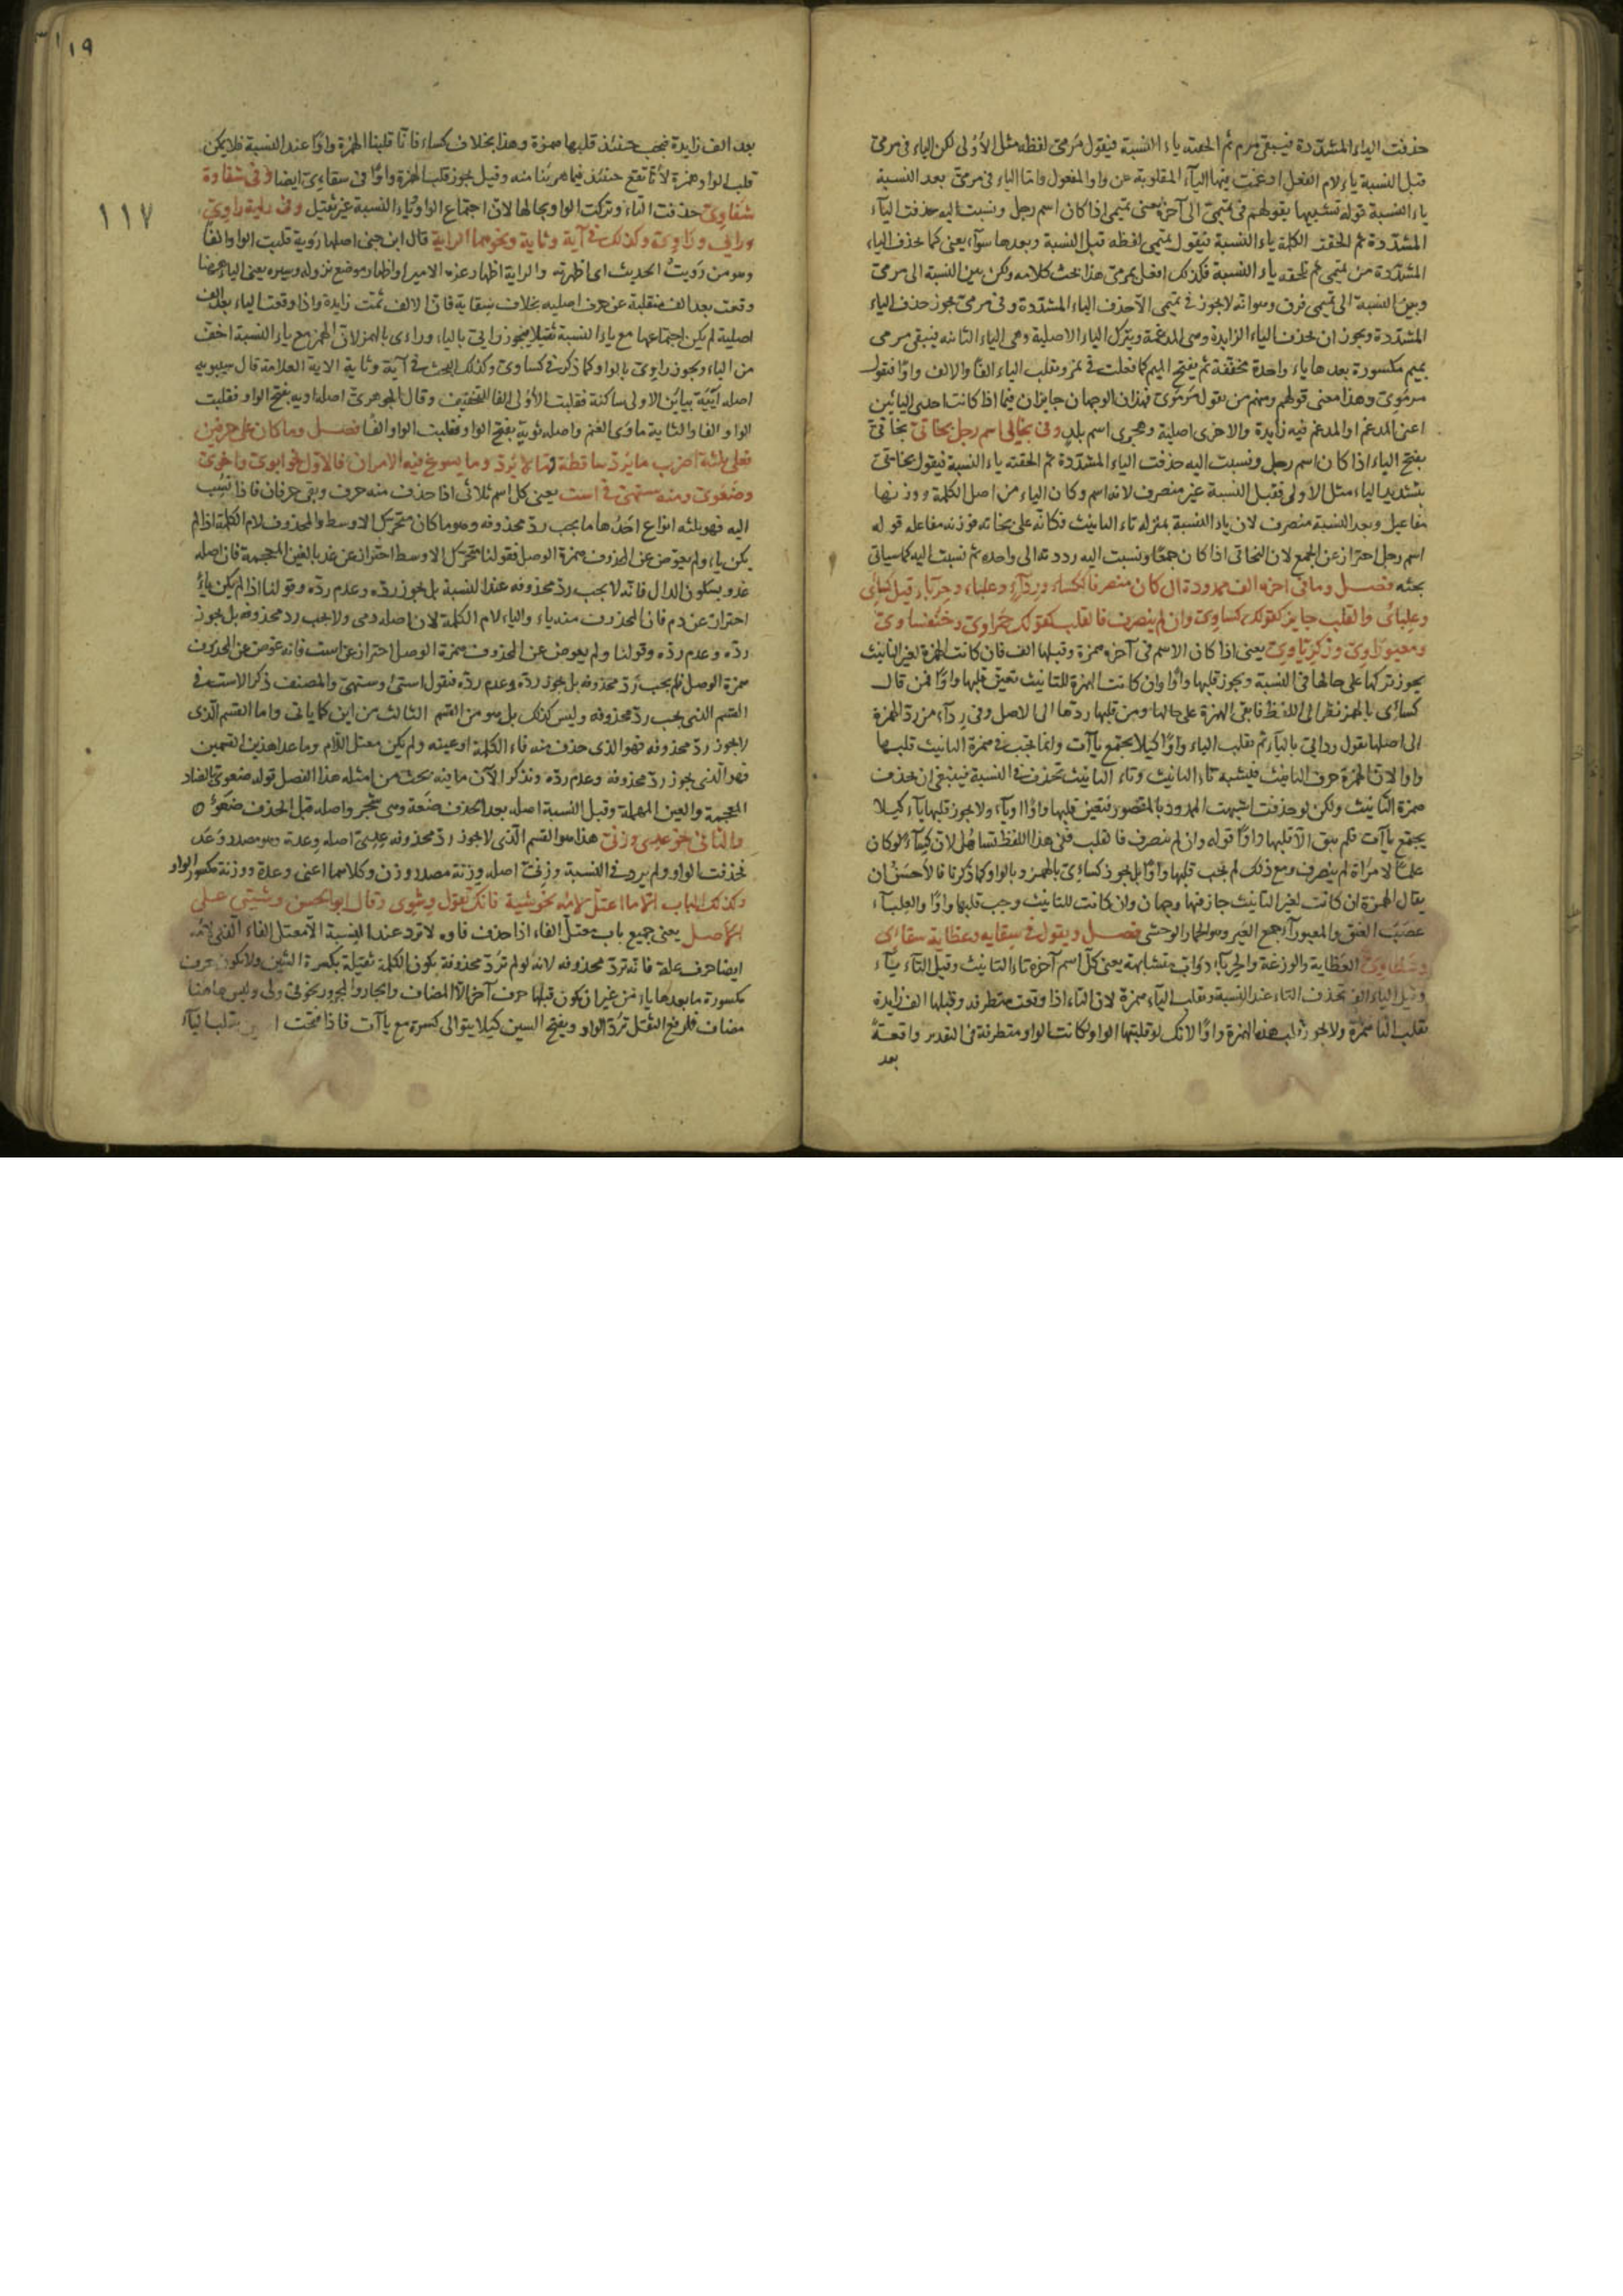 حذفت الياء المشددة فيبقى مرم ثم الحقته ياء النسبة فيقول مرمى لفظه مثل الأولى لكن الياء فى مرمى
قبل النسبة ياء لام الفعل ادغمت فيها الياء المقلوبة عن واو المفعول واما الياء فى مرمى بعد النسبة
ياء النسبة قوله تشبيها بقولهم فى تميمى الى آخره يعنى تميمى اذا كان اسم رجل ونسبت اليه حذفت الياء
المشددة ثم الحقت الكلمة ياء النسبة فيقول تميمى لفظه قبل النسبة وبعدها سواء يعنى كما حذف الياء
المشددة من تميمى ثم تلحقه ياء النسبة فكذلك افعل بمرمى هذا بحث كلامه ولكن بين النسبة الى مرمى
وبين النسبة الى تميمى فرق وهو انه لا يجوز فى تميمى الا حذف الياء المشددة وفى مرمى يجوز حذف الياء
المشددة ويجوز ان تحذف الياء الزايدة وهى المدغمة ويترك الياء الاصلية وهى الياء الثانية فيبقى مرمى
بميم مكسورة بعدها ياء واحدة مخففة ثم يفتح الميم كما فعلت فى نمر وتقلب الياء الفا والالف واوا فتقول
مرموى وهذا معنى قولهم ومنهم من يقول مرموى فهذان الوجهان جايزان فيما اذا كانت احدى اليائين
اعنى المدغم او المدغم فيه زايدة والاخرى اصلية وهجرى اسم بلد وفى بخاتى اسم رجل بخاتى بخاتى
بفتح الياء اذا كان اسم رجل ونسبت اليه حذفت الياء المشددة ثم الحقته ياء النسبة فيقول بخاتى
بتشديد الياء مثل الأولى فقبل النسبة غير منصرف لانه اسم وكان الياء من اصل الكلمة ووزنها
مفاعيل وبعد النسبة منصرف لان ياء النسبة بمنزلة تاء التانيث فكانه على بخاته فوزنه مفاعله قوله
اسم رجل احتراز عن الجمع لان البخاتى اذا كان جمعا ونسبت اليه رددته الى واحده ثم نسبت اليه كما سياتى
بحثه فصل وما فى اخره الف ممدودة ان كان منصرفا ككساء ورداء وعلباء وحرباء قيل كسائى
وعلبائى والقلب جايز كقولك كساوى وان لم ينصرف فالقلب كقولك حمراوى وخنفساوى
ومعيوراوى وزكرياوى يعنى اذا كان الاسم فى آخره همزة وقبلها الف فان كانت الهمزة لغير التانيث
يجوز تركها على حالها فى النسبة ويجوز قلبها واوا وان كانت الهمزة للتانيث تعين قلبها واوا فمن قال
كسائى بالهمز نظر الى اللفظ فابقى الهمزة على حالها ومن قلبها ردها الى الاصل وفى رداء من رد الهمزة
الى اصلها يقول ردايى بالياء ثم تقلب الياء واوا كيلا يجتمع ياآت وانما يجب فى همزة التانيث قلبها
واوا لان الهمزة حرف التانيث فيشبه تاء التانيث وتاء التانيث تحذف فى النسبة فينبغى ان تحذف
همزة التانيث ولكن لو حذفت اشبهت الممدود بالمقصور فتعين قلبها واوا او ياء ولا يجوز قلبها ياء كيلا
يجتمع ياآت فلم يبق الا قلبها واوا قوله وان لم ينصرف فالقلب ففى هذا اللفظ تساهل لان كساء لو كان
علما لامرأة لم ينصرف ومع ذلك لم يجب قلبها واوا بل يجوز كسائى بالهمز وبالواو كما ذكرنا فالأحسن ان
يقال الهمزة ان كانت لغير التانيث جاز فيها وجهان وان كانت للتانيث وجب قلبها واوا والعلباء
عصب العنق والمعيوراء جمع العير وهو الحمار الوحشى فصل ويقول فى سقايه وعظاية سقائى
وعظاوى العظاية والوزغة والحرباء دواب متشابهة يعنى كل اسم آخره تاء التانيث وقبل التاء ياء
وقبل الياء الف تحذف التاء عند النسبة وتقلب الياء همزة لان الياء اذا وقعت متطرفة وقبلها الف زايدة
تقلب الياء همزة ولا يجوز قلب هذه الهمزة واوا لانك لو قلبتها الواو لكانت الواو متطرفة فى التقدير واقعة
بعد
١٩
١١٧
بعد الف زايدة فيجب حينئذ قلبها همزة وهذا بخلاف كساء فانا قلبنا الهمزة واوا عند النسبة فلا يمكن
قلب الواو همزة لانا نقع حينئذ فيما هربنا منه وقيل يجوز قلب الهمزة واوا فى سقاوى ايضا وفى شقاوة
شقاوى حذفت التاء وتركت الواو بحالها لان اجتماع الواو وياء النسبة غير ثقيل وفى راية راوى
ورائى وراوى وكذلك فى آية وثاية ونحوهما الراية قال ابن جنى اصلها روية قلبت الواو الفا
وهو من رويت الحديث اى اظهرته والراية اظهار عزه الامير او اظهار موضع نزوله وسيره يعنى الياء ههنا
وقعت بعد الف منقلبة عن حرف اصليه بخلاف سقاية فان الالف ثمت زايدة واذا وقعت الياء بعد الف
اصلية لم يكن اجتماعها مع ياء النسبة ثقيلا فيجوز رايى بالياء ورائى بالهمز لان الهمز مع ياء النسبة اخف
من الياء ويجوز راوى بالواو كما ذكر فى كساوى وكذلك البحث فى آية وثاية الاية العلامة قال سيبويه
اصله اييه بيائين الاولى ساكنة فقلبت الأولى الفا للتخفيف وقال الجوهرى اصله اويه بفتح الواو فقلبت
الواو الفا والثاية مأوى الغنم واصله ثوية بفتح الواو فقلبت الواو الفا فصل وما كان على حرفين
فعلى ثلثة اضرب ما يرد ساقطه وما لا يرد وما يسوغ فيه الامران فالاول نحو ابوى واخوى
وضعوى ومنه ستهى فى است يعنى كل اسم ثلاثى اذا حذف منه حرف وبقى حرفان فاذا نسب
اليه فهو ثلثه انواع احدها ما يجب رد محذوفه وهو ما كان متحرك الاوسط والمحذوف لام الكلمة اذا لم
يكن ياء ولم يعوض عن المحذوف همزة الوصل فقولنا متحرك الاوسط احتراز عن غد بالغين المعجمة فان اصله
غدو بسكون الدال فانه لا يجب رد محذوفه عند النسبة بل يجوز رده وعدم رده وقولنا اذا لم يكن ياء
احتراز عن دم فان المحذوف منه ياء والياء لام الكلمة لان اصله دمى ولا يجب رد محذوفه بل يجوز
رده وعدم رده وقولنا ولم يعوض عن المحذوف همزة الوصل احتراز عن است فانه عوض عن المحذوف
همزة الوصل فلم يجب رد محذوفه بل يجوز رده وعدم رده فتقول استى وستهى والمصنف ذكر الاست فى
القسم الذى يجب رد محذوفه وليس كذلك بل هو من القسم الثالث من اين كما ياتى واما القسم الذى
لا يجوز رد محذوفه فهو الذى حذف منه فاء الكلمة او عينه ولم يكن معتل اللام وما عدا هذين القسمين
فهو الذى يجوز رد محذوفه وعدم رده ونذكر الآن ما فيه بحث من امثلة هذا الفصل قوله ضعوى بالضاد
المعجمة والعين المهملة وقبل النسبة اصله بعد الحذف ضعة وهى شجر واصله قبل الحذف ضعوة
والثانى نحو عدى وزنى هذا هو القسم الذى لا يجوز رد محذوفه عدى اصله وعدة وهو مصدر وعد
فحذفت الواو ولم يرد فى النسبة وزنى اصله وزنة مصدر وزن وكلاهما اعنى وعدة ووزنة مكسور الواو
وكذلك الباب الا ما اعتل لامه نحو شية فانك تقول وشوى وقال ابو الحسن وشيى على
الاصل يعنى جميع باب معتل الفاء اذا حذف فاوه لا ترد عند النسبة الا معتل الفاء الذى لامه
ايضا حرف علة فانه ترد محذوفه لانه لو لم ترد محذوفة تكون الكلمة ثقيلة بكسرة الشين ولا يكون حرف
مكسورة ما بعدها ياء من غير ان يكون قبلها حرف آخر الا المضاف والجار والمجرور نحو فى ولى وليس هاهنا
مضاف فلرفع الثقل ترد الواو ويفتح السين كيلا يتوالى كسرة مع ياآت فاذا فتحت تقلب الياء